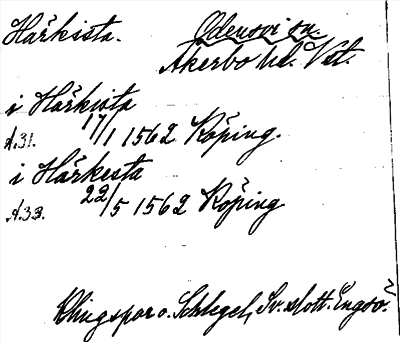 Härkista. Odensvi sn.
Åkerbo hd. Vst.
i Härkista
A.31. 17/1 1562 Köping.
i Härkesta
A.33. 22/5 1562 Köping
Klingspor o. Schlegel, Sv. slott. Engsö.